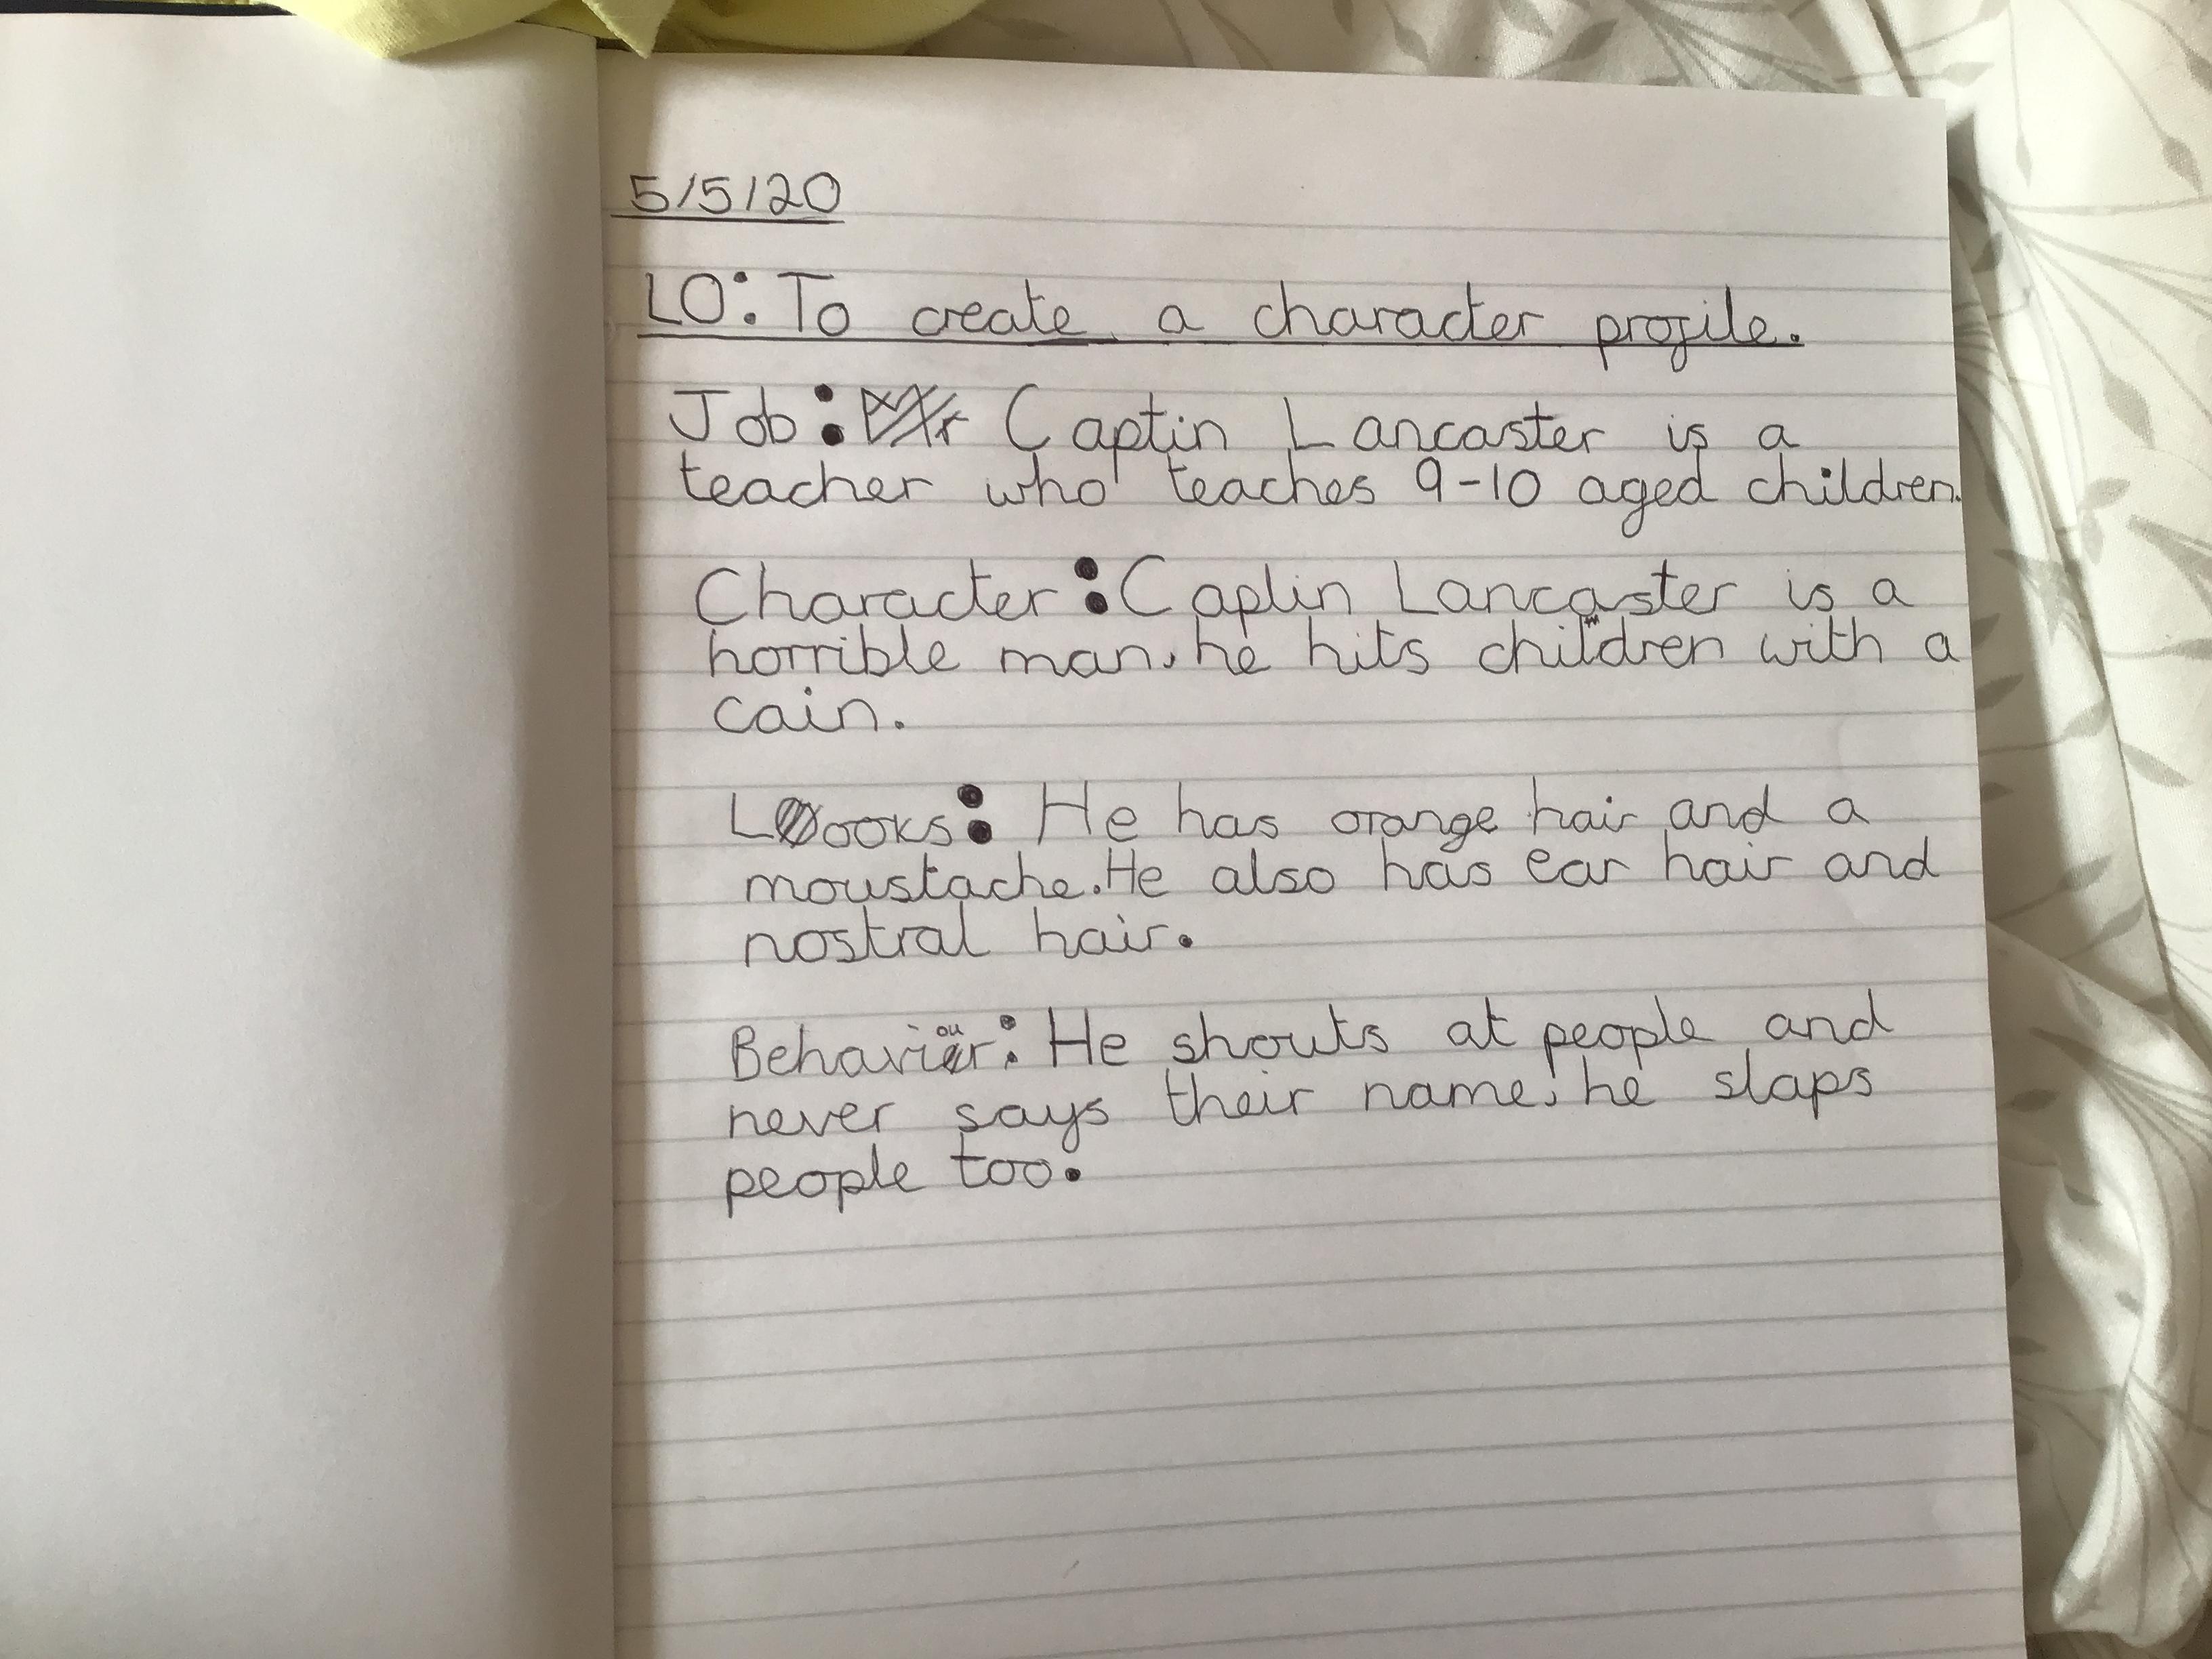 5/5/20
LO: To create a character profile.
Job: Captin Lancaster is a
teacher who teaches 9-10 aged children.
Character: Captin Lancaster is a
horrible man, he hits children with a
cain.
Looks: He has orange hair and a
moustache. He also has ear hair and
nostral hair.
Behaviour: He shouts at people and
never says their name, he slaps
people too.